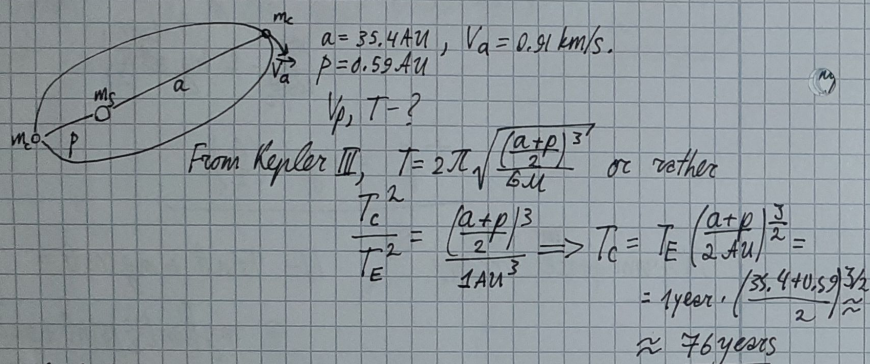 mc
a = 35.4 AU, Va = 0.91 km/s.
Va
p = 0.59 AU
a
ms
Vp, T - ?
mc
p
From Kepler III, T = 2π √(((a+p)/2)³ / GM) or rather
Tc² / TE² = ((a+p)/2)³ / 1AU³ ⟹ Tc = TE ((a+p)/(2 AU))^(3/2) =
= 1 year · ((35.4+0.59)/2)^(3/2) ≈
≈ 76 years